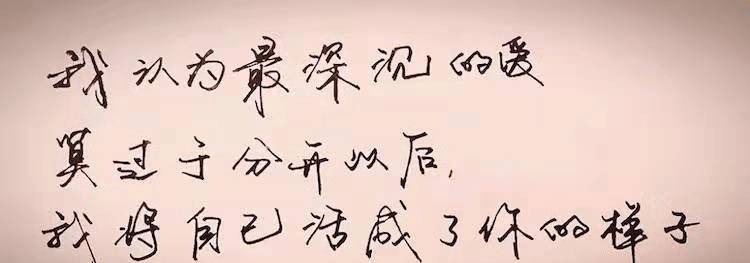 我认为最深沉的爱
莫过于分开以后,
我将自己活成了你的样子